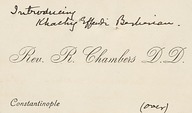 Introducing
Khachig Effendi Berberian.
Rev. R. Chambers D. D.
Constantinople
(over)